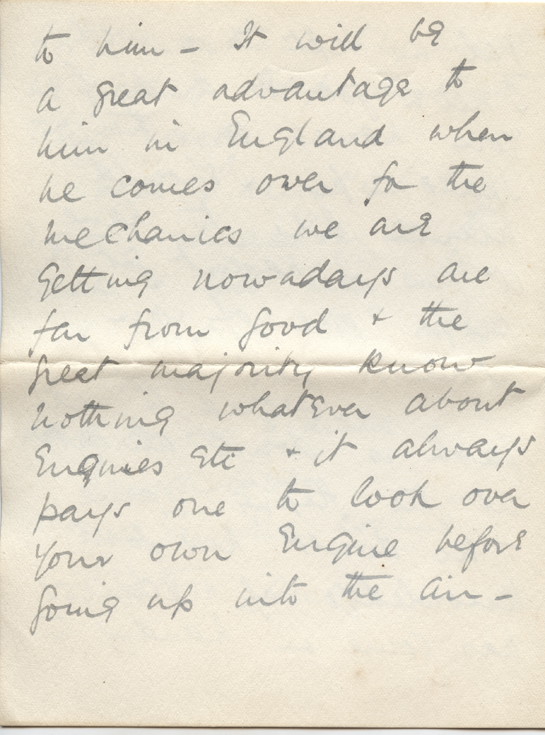 to him - It will be
a great advantage to
him in England when
he comes over for the
mechanics we are
getting nowadays are
far from good & the
great majority know
nothing whatever about
Engines etc & it always
pays one to look over
your own Engine before
going up into the air -